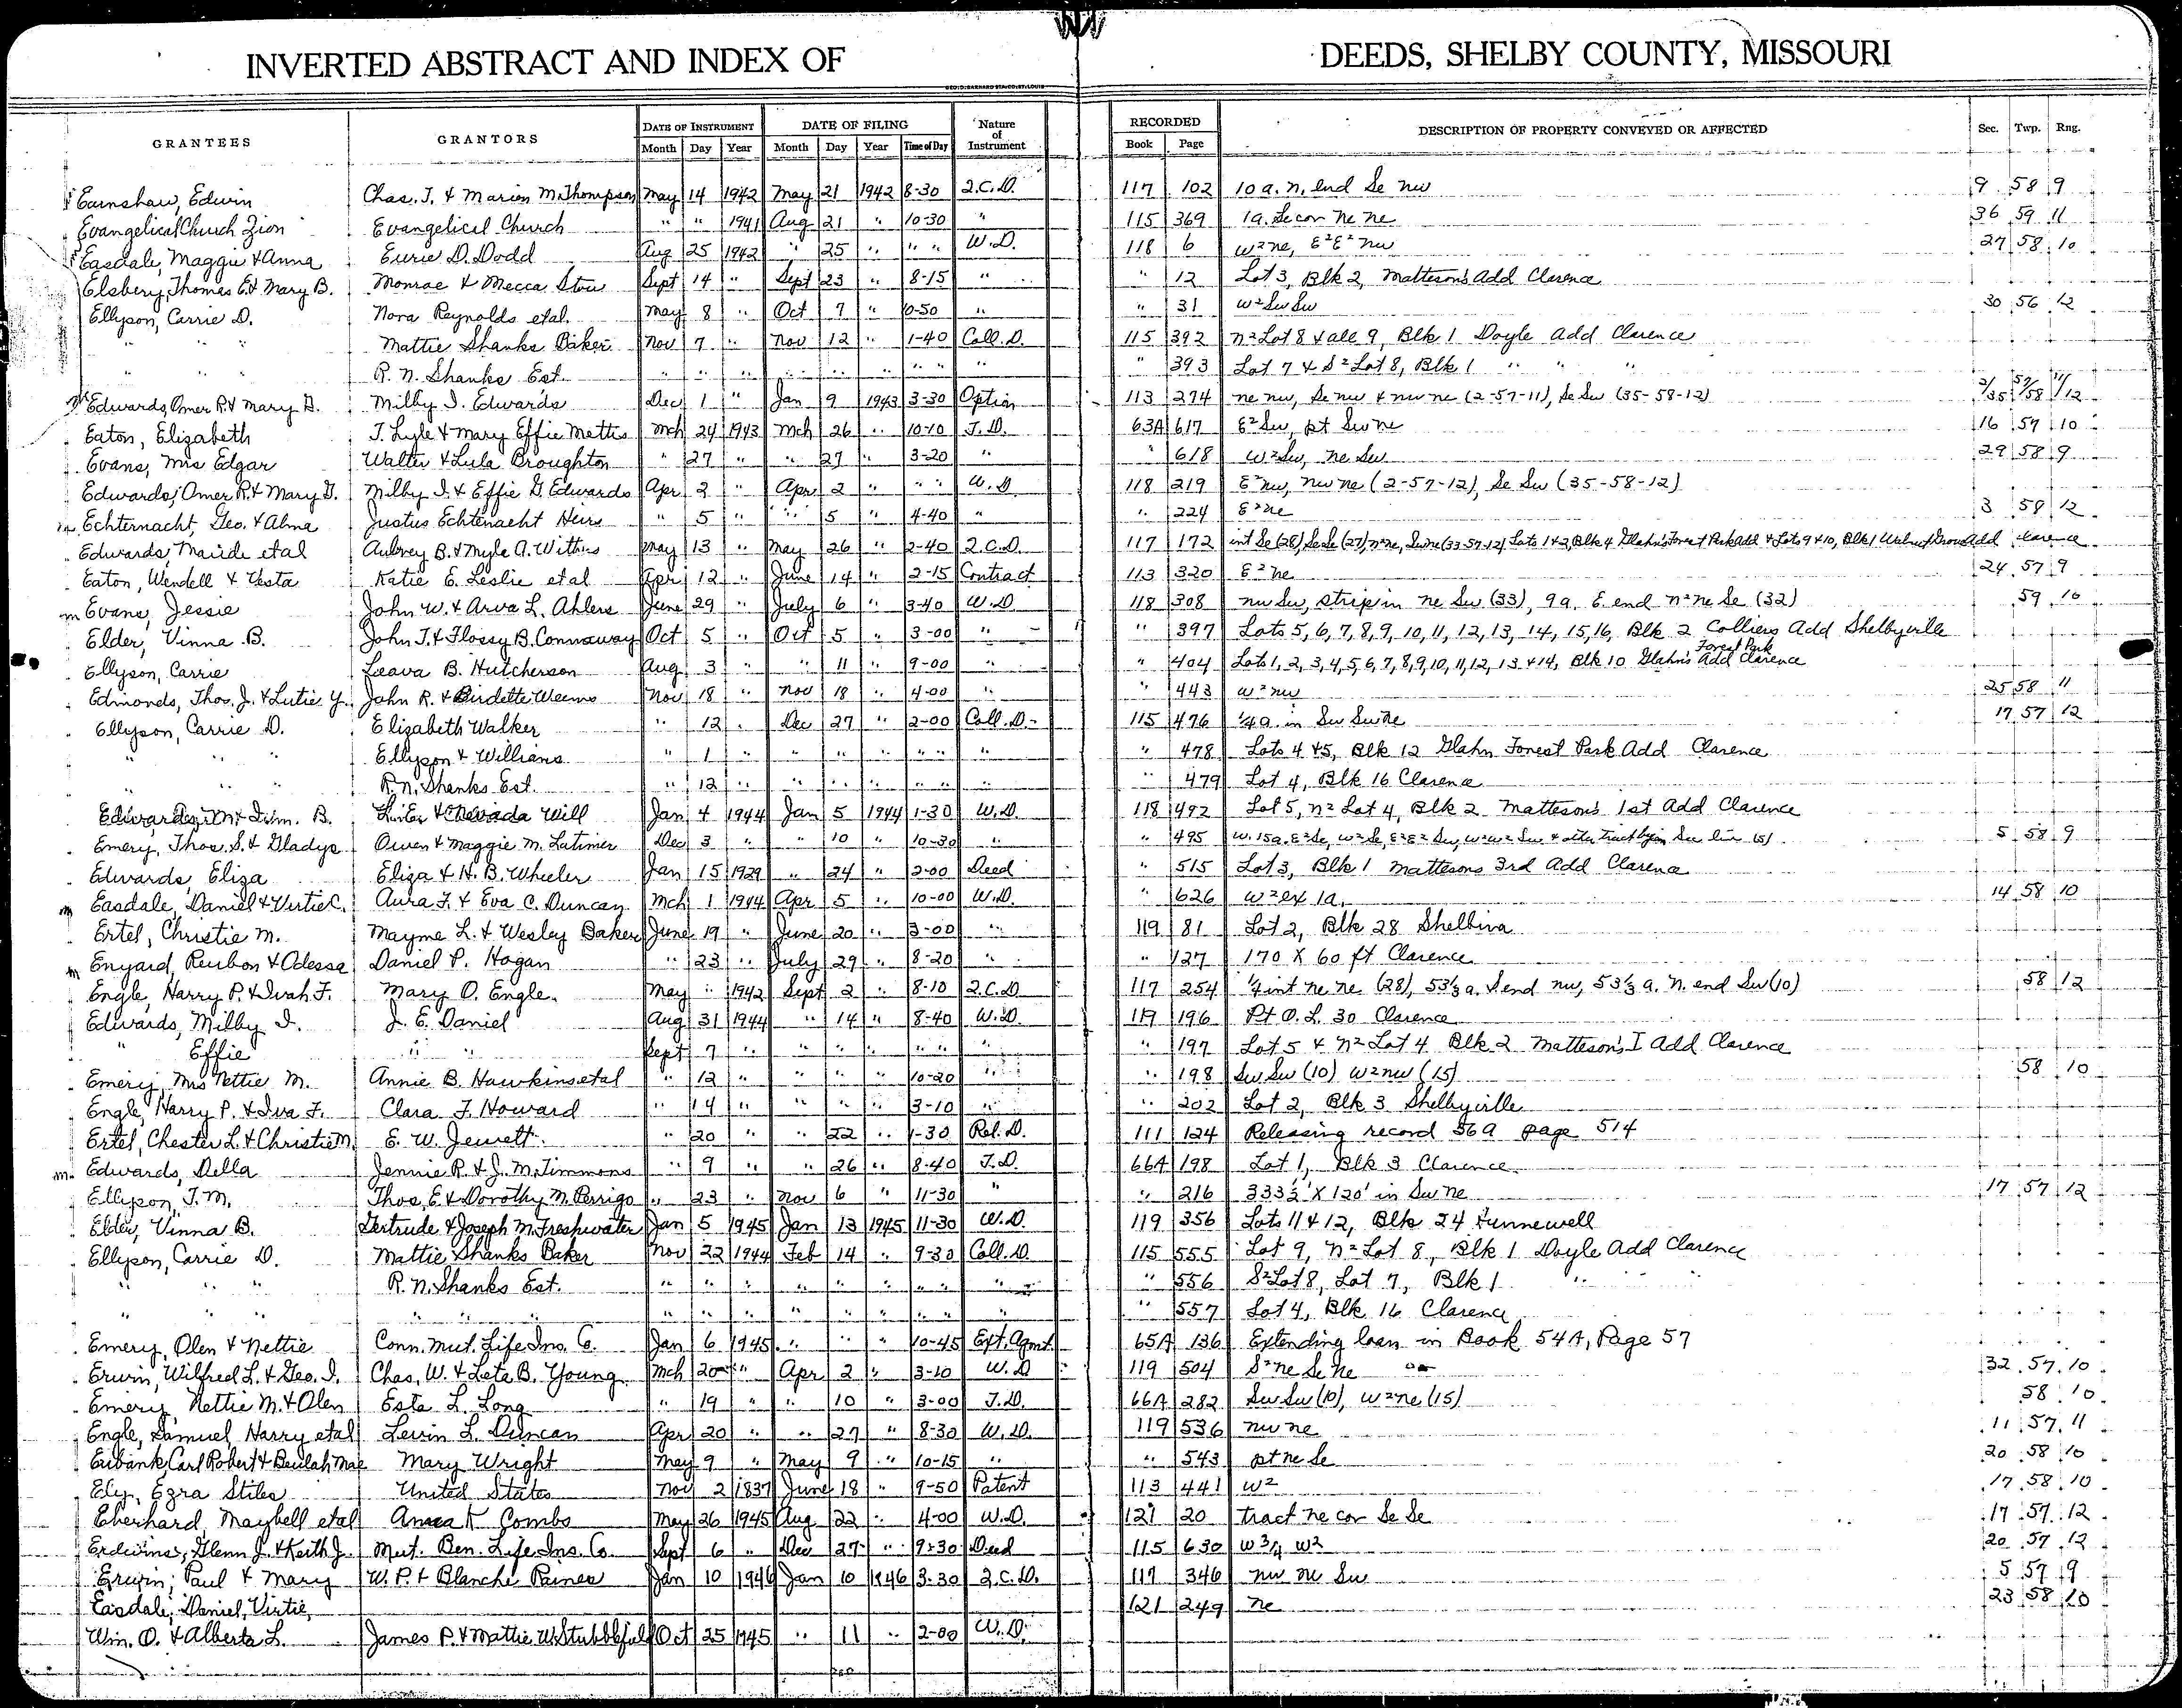 INVERTED ABSTRACT AND INDEX OF DEEDS, SHELBY COUNTY, MISSOURI
GRANTEES GRANTORS DATE OF INSTRUMENT DATE OF FILING Nature of Instrument RECORDED DESCRIPTION OF PROPERTY CONVEYED OR AFFECTED Sec. Twp. Rng.
Month Day Year Month Day Year Time of Day Book Page
Earnshaw, Edwin Chas. T. & Marion M. Thompson May 14 1942 May 21 1942 8-30 Q.C.D. 117 102 10 a. N. end Se nw 9 58 9
Evangelical Church Zion Evangelical Church " " 1941 Aug 21 " 10-30 " 115 369 1a. Se cor ne ne 36 59 11
Easdale, Maggie & Anna Eurie D. Dodd Aug 25 1942 " 25 " " " W.D. 118 6 W²ne, E²E² nw 27 58 10
Elsbery, Thomas E. & Mary B. Monroe & Mecca Sept 14 " Sept 23 " 8-15 " " 12 Lot 3, Blk 2, Matteson's Add Clarence
Ellyson, Carrie D. Nora Reynolds etal. May 8 " Oct 7 " 10-50 " " 31 W² Sw Sw 30 56 12
" " " Mattie Shanks Baker Nov 7 " Nov 12 " 1-40 Coll. D. 115 392 n² Lot 8 & all 9, Blk 1 Doyle Add Clarence
" " " R. N. Shanks Est. " " " " " " " " " " 393 Lot 7 & S² Lot 8, Blk 1 " " "
Edwards, Omer R. & Mary G. Milby I. Edwards Dec 1 " Jan 9 1943 3-30 Option 113 274 ne nw, Se nw & nw ne (2-57-11), Se Sw (35-58-12) 2/35 57/58 11/12
Eaton, Elizabeth T. Lyle & Mary Effie Mettes Mch 24 1943 Mch 26 " 10-10 T.D. 63A 617 E² Sw, pt Sw ne 16 57 10
Evans, Mrs Edgar Walter & Lula Broughton " 27 " " 27 " 3-20 " " 618 W² Sw, ne Sw 29 58 9
Edwards, Omer R. & Mary G. Milby I. & Effie G. Edwards Apr 2 " Apr 2 " " " W.D. 118 219 E² nw, nw ne (2-57-12), Se Sw (35-58-12)
Echternacht, Geo. & Alma Justus Echtenacht Heirs " 5 " " 5 " 4-40 " " 224 E² ne 3 58 12
Edwards, Maude etal Aubrey B. & Myle A. Withers May 13 " May 26 " 2-40 Q.C.D. 117 172 int Se (28), Se Se (27), n² ne, Sw ne (33-57-12) Lots 1 & 2, Blk 4 Glahn's Forest Park Add & Lots 9 & 10, Blk 1 Walnut Grove Add Clarence
Eaton, Wendell & Vesta Katie E. Leslie etal Apr 12 " June 14 " 2-15 Contract 113 320 E² ne 24 57 9
Evans, Jessie John W. & Arva L. Ahlers June 29 " July 6 " 3-40 W.D. 118 308 nw Sw, strip in ne Sw (33), 9a. E. end n² ne Se (32) 59 10
Elder, Vinna B. John T. & Flossy B. Connaway Oct 5 " Oct 5 " 3-00 " " 397 Lots 5, 6, 7, 8, 9, 10, 11, 12, 13, 14, 15, 16, Blk 2 Colliers Add Shelbyville
Ellyson, Carrie Leava B. Hutcherson Aug 3 " " 11 " 9-00 " " 404 Lots 1, 2, 3, 4, 5, 6, 7, 8, 9, 10, 11, 12, 13 & 14, Blk 10 Glahn's Forest Park Add Clarence
Edmonds, Thos. J. & Lutie Y. John R. & Birdette Weems Nov 18 " Nov 18 " 4-00 " " 443 W² nw 25 58 11
Ellyson, Carrie D. Elizabeth Walker " 12 " Dec 27 " 2-00 Coll. D. 115 476 ¼ a. in Sw Sw ne 17 57 12
" " " Ellyson & Williams " 1 " " " " " " " " 478 Lots 4 & 5, Blk 12 Glahn Forest Park Add Clarence
" " " R. N. Shanks Est. " 12 " " " " " " " " 479 Lot 4, Blk 16 Clarence
Edwards, B. & Nevada Will Jan 4 1944 Jan 5 1944 1-30 W.D. 118 492 Lot 5, n² Lot 4, Blk 2 Matteson's 1st Add Clarence
Emery, Thos. S. & Gladys Owen & Maggie M. Latimer Dec 3 " " 10 " 10-30 " " 495 W. 15a. E² Se, W² Se, E² E² Sw, W² W² Sw & other tract 5 58 9
Edwards, Eliza Eliza & H. B. Wheeler Jan 15 1929 " 24 " 2-00 Deed " 515 Lot 3, Blk 1 Mattesons 3rd Add Clarence
Easdale, Daniel & Virtie C. Aura F. & Eva C. Duncan Mch 1 1944 Apr 5 " 10-00 W.D. " 626 W² ex 1a. 14 58 10
Ertel, Christie M. Mayme L. & Wesley Baker June 19 " June 20 " 3-00 " 119 81 Lot 2, Blk 28 Shelbina
Enyard, Reubon & Odessa Daniel P. Hogan " 23 " July 29 " 8-20 " " 127 170 X 60 ft Clarence
Engle, Harry P. & Ivah F. Mary O. Engle. May " 1942 Sept 2 " 8-10 Q.C.D. 117 254 ¼ int ne ne (28), 53⅓ a. S end nw, 53⅓ a. N. end Sw (10) 58 12
Edwards, Milby I. J. E. Daniel Aug 31 1944 " 14 " 8-40 W.D. 119 196 Pt O.L. 30 Clarence
" Effie " " Sept 7 " " " " " " " " 197 Lot 5 & n² Lot 4 Blk 2 Matteson's I Add Clarence
Emery, Mrs Nettie M. Annie B. Hawkins etal " 12 " " " " 10-20 " " 198 Sw Sw (10) W² nw (15) 58 10
Engle, Harry P. & Iva F. Clara F. Howard " 14 " " " " 3-10 " " 202 Lot 2, Blk 3 Shelbyville
Ertel, Chester L. & Christie M. E. W. Jewett " 20 " " 22 " 1-30 Rel. D. 111 124 Releasing record 56A page 514
Edwards, Della Jennie R. & J. M. Timmons " 9 " " 26 " 8-40 T.D. 66A 198 Lot 1, Blk 3 Clarence
Ellyson, J. M. Thos. E. & Dorothy M. Perrigo " 23 " Nov 6 " 11-30 " " 216 333½' X 120' in Sw ne 17 57 12
Elder, Vinna B. Gertrude & Joseph M. Freshwater Jan 5 1945 Jan 13 1945 11-30 W.D. 119 356 Lots 11 & 12, Blk 24 Hunnewell
Ellyson, Carrie D. Mattie Shanks Baker Nov 22 1944 Feb 14 " 9-30 Coll. D. 115 555 Lot 9, n² Lot 8, Blk 1 Doyle Add Clarence
" " " R. N. Shanks Est. " " " " " " " " " " 556 S² Lot 8, Lot 7, Blk 1 "
" " " " " " " " " " " " " " " " 557 Lot 4, Blk 16 Clarence
Emery, Olen & Nettie Conn. Mut. Life Ins. Co. Jan 6 1945 " " " 10-45 Ext. Agmt. 65A 136 Extending loan in Book 54A, Page 57
Erwin, Wilfred L. & Geo. I. Chas. W. & Leta B. Young Mch 20 " Apr 2 " 3-10 W.D. 119 504 S² ne Se ne 32 57 10
Emery, Nettie M. & Olen Esta L. Long " 19 " " 10 " 3-00 T.D. 66A 282 Sw Sw (10), W² ne (15) 58 10
Engle, Samuel Harry etal Levin L. Duncan Apr 20 " " 27 " 8-30 W.D. 119 536 nw ne 11 57 11
Eubank, Carl Robert & Beulah Mae Mary Wright May 9 " May 9 " 10-15 " " 543 pt ne Se 20 58 10
Ely, Ezra Stiles United States Nov 2 1837 June 18 " 9-50 Patent 113 441 W² 17 58 10
Eherhard, Maybell etal Combs May 26 1945 Aug 22 " 4-00 W.D. 121 20 tract ne cor Se Se 17 57 12
Erdwins, Glenn J. & Keith J. Mut. Ben. Life Ins. Co. Sept 6 " Dec 27 " 9-30 Deed 115 630 W ¾ W² 20 57 12
Erwin, Paul & Mary W. P. & Blanche Raines Jan 10 1946 Jan 10 1946 3-30 Q.C.D. 117 346 nw ne Sw 5 57 9
Easdale, Daniel, Virtie, 121 249 ne 23 58 10
Wm. O. & Alberta L. James P. & Mattie W. Stubblefield Oct 25 1945 " 11 " 2-00 W.D.